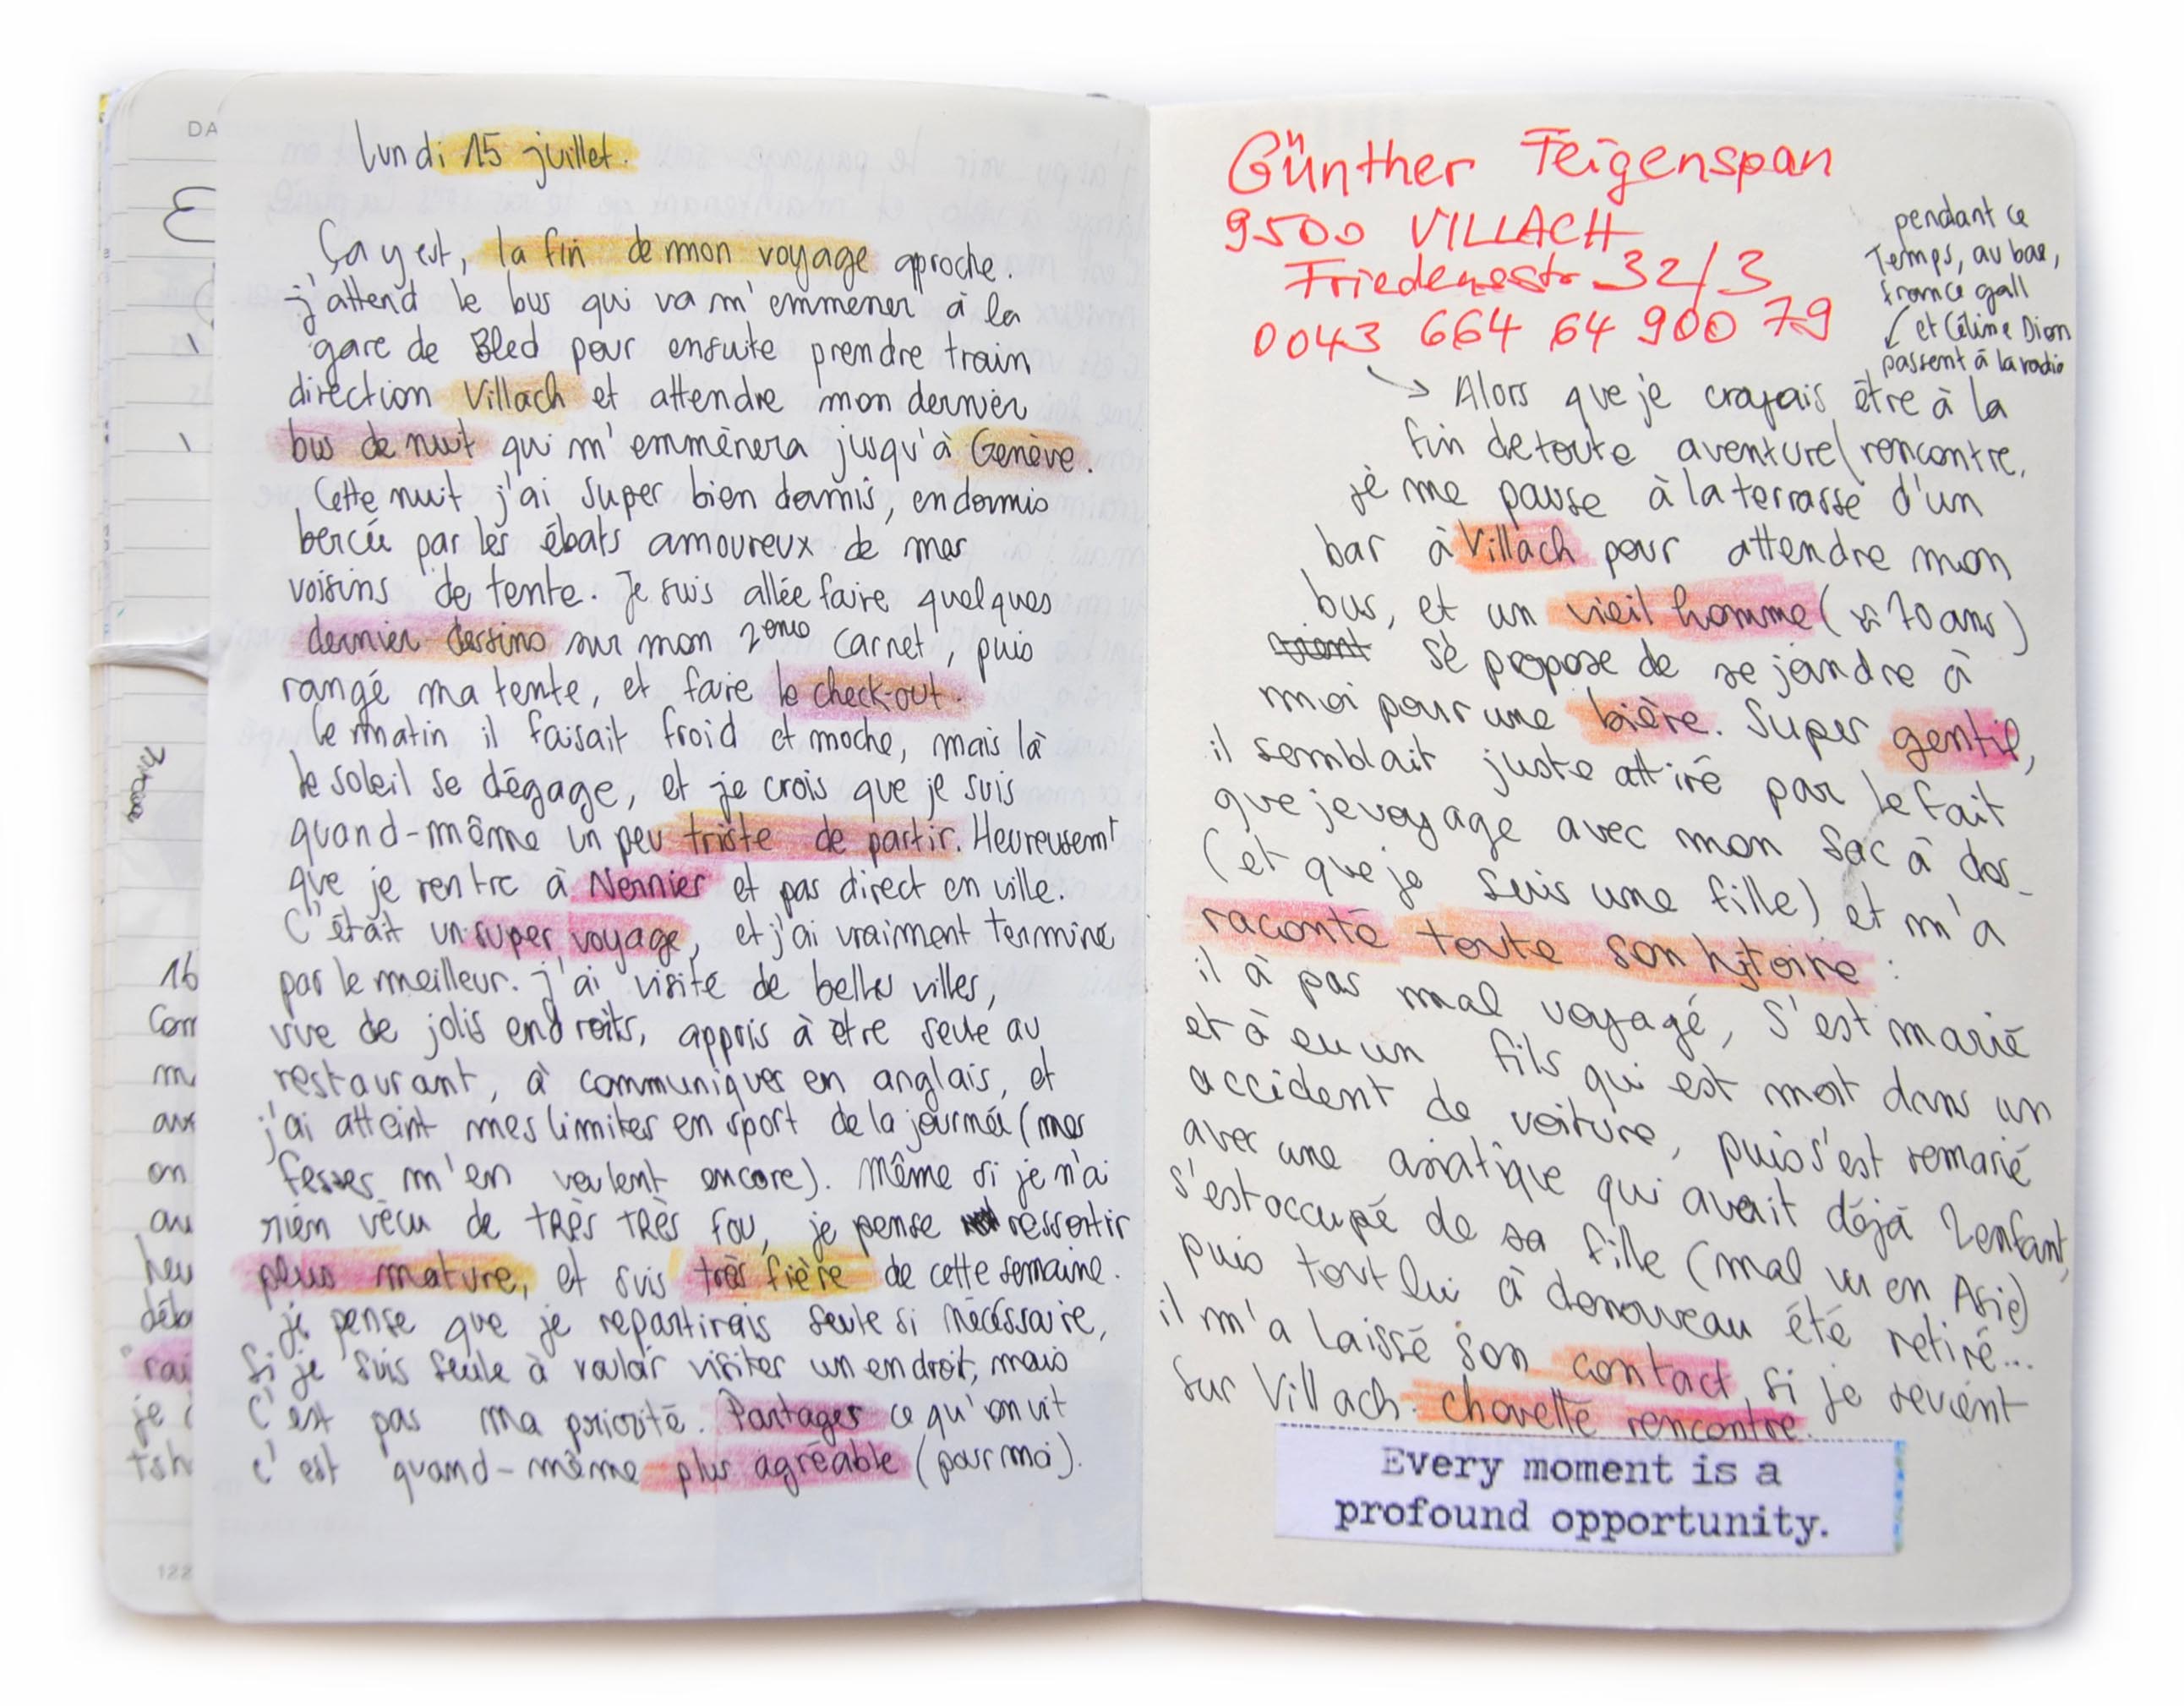 DA
lundi 15 juillet.
Ça y est, la fin de mon voyage aproche.
j'attend le bus qui va m'emmener à la
gare de Bled pour ensuite prendre train
direction Villach et attendre mon dernier
bus de nuit qui m'emmènera jusqu'à Genève.
Cette nuit j'ai super bien dormis, endormis
bercée par les ébats amoureux de mes
voisins de tente. Je suis allée faire quelques
dernier dessins sur mon 2ème carnet, puis
rangé ma tente, et faire le check-out.
le matin il faisait froid et moche, mais là
le soleil se dégage, et je crois que je suis
quand-même un peu triste de partir. Heureusemt
que je rentre à Nernier et pas direct en ville.
C'était un super voyage, et j'ai vraiment terminé
par le meilleur. j'ai visité de belles villes,
vue de jolis endroits, appris à être seule au
restaurant, à communiquer en anglais, et
j'ai atteint mes limites en sport de la journée (mes
fesses m'en veulent encore). Même si je n'ai
rien vécu de TRÈS TRÈS fou, je pense ressortir
plus mature, et suis très fière de cette semaine.
je pense que je repartirais seule si nécéssaire,
si je suis seule à vouloir visiter un endroit, mais
C'est pas ma priorité. Partager ce qu'on vit
c'est quand-même plus agréable (pour moi).
16
Com
m
on
heu
déb
rai
je
tsh
122
Günther Feigenspan
9500 VILLACH
Friedensstr 32/3
0043 664 64 900 79
pendant ce
Temps, au bar,
france gall
et Céline Dion
passent à la radio
→ Alors que je croyais être à la
fin de toute aventure/rencontre,
je me pause à la terrasse d'un
bar à Villach pour attendre mon
bus, et un vieil homme (≈ 70 ans)
vient se propose de se joindre à
moi pour une bière. Super gentil,
il semblait juste attiré par le fait
que je voyage avec mon sac à dos
(et que je suis une fille) et m'a
raconté toute son hstoire :
il à pas mal voyagé, s'est marié
et à eu un fils qui est mort dans un
accident de voiture, puis s'est remarié
avec une asiatique qui avait déjà 2 enfant,
s'est occupé de sa fille (mal vu en Asie)
puis tout lui à denouveau été retiré...
il m'a laissé son contact si je revient
sur Villach. chouette rencontre.
Every moment is a
profound opportunity.